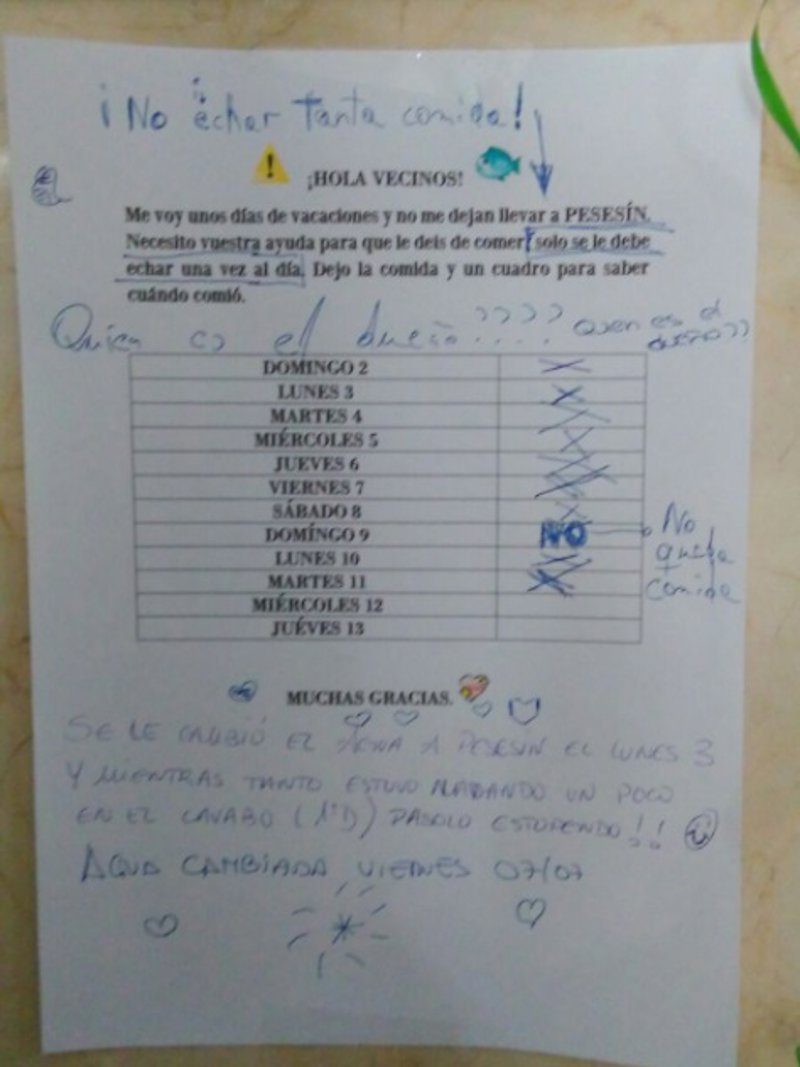 ¡No echar tanta comida!
¡HOLA VECINOS!
Me voy unos días de vacaciones y no me dejan llevar a PESESÍN.
Necesito vuestra ayuda para que le deis de comer, solo se le debe
echar una vez al día. Dejo la comida y un cuadro para saber
cuándo comió.
Quien es el dueño????
quen es el
dueño??
DOMINGO 2
LUNES 3
MARTES 4
MIÉRCOLES 5
JUEVES 6
VIERNES 7
SÁBADO 8
DOMÍNGO 9 NO
No
queda
comida
LUNES 10
MARTES 11
MIÉRCOLES 12
JUÉVES 13
MUCHAS GRACIAS.
SE LE CAMBIÓ EL AGUA A PESESÍN EL LUNES 3
Y MIENTRAS TANTO ESTUVO NADANDO UN POCO
EN EL LAVABO (1ºD) PASOLO ESTUPENDO!!
AGUA CAMBIADA VIERNES 07/07